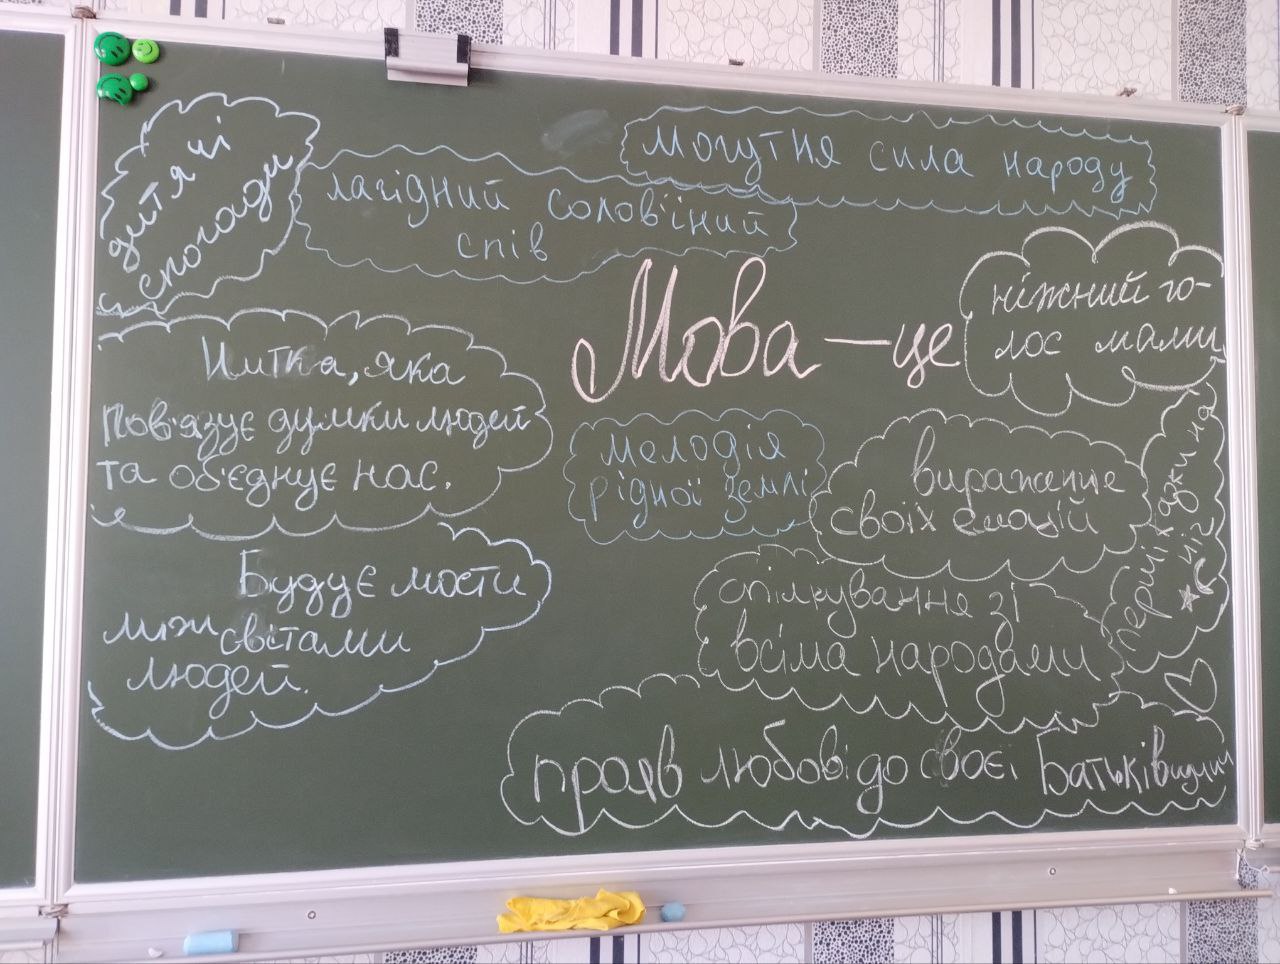 дитячі
спогади
лагідний солов'їний
спів
могутня сила народу
Мова — це
ніжний го-
лос мами
Нитка, яка
пов'язує думки людей
та об'єднує нас.
мелодія
рідної землі
вираження
своїх емоцій
Будує мости
між світами
людей.
спілкування зі
всіма народами
перші
прояв любові до своєї Батьківщини